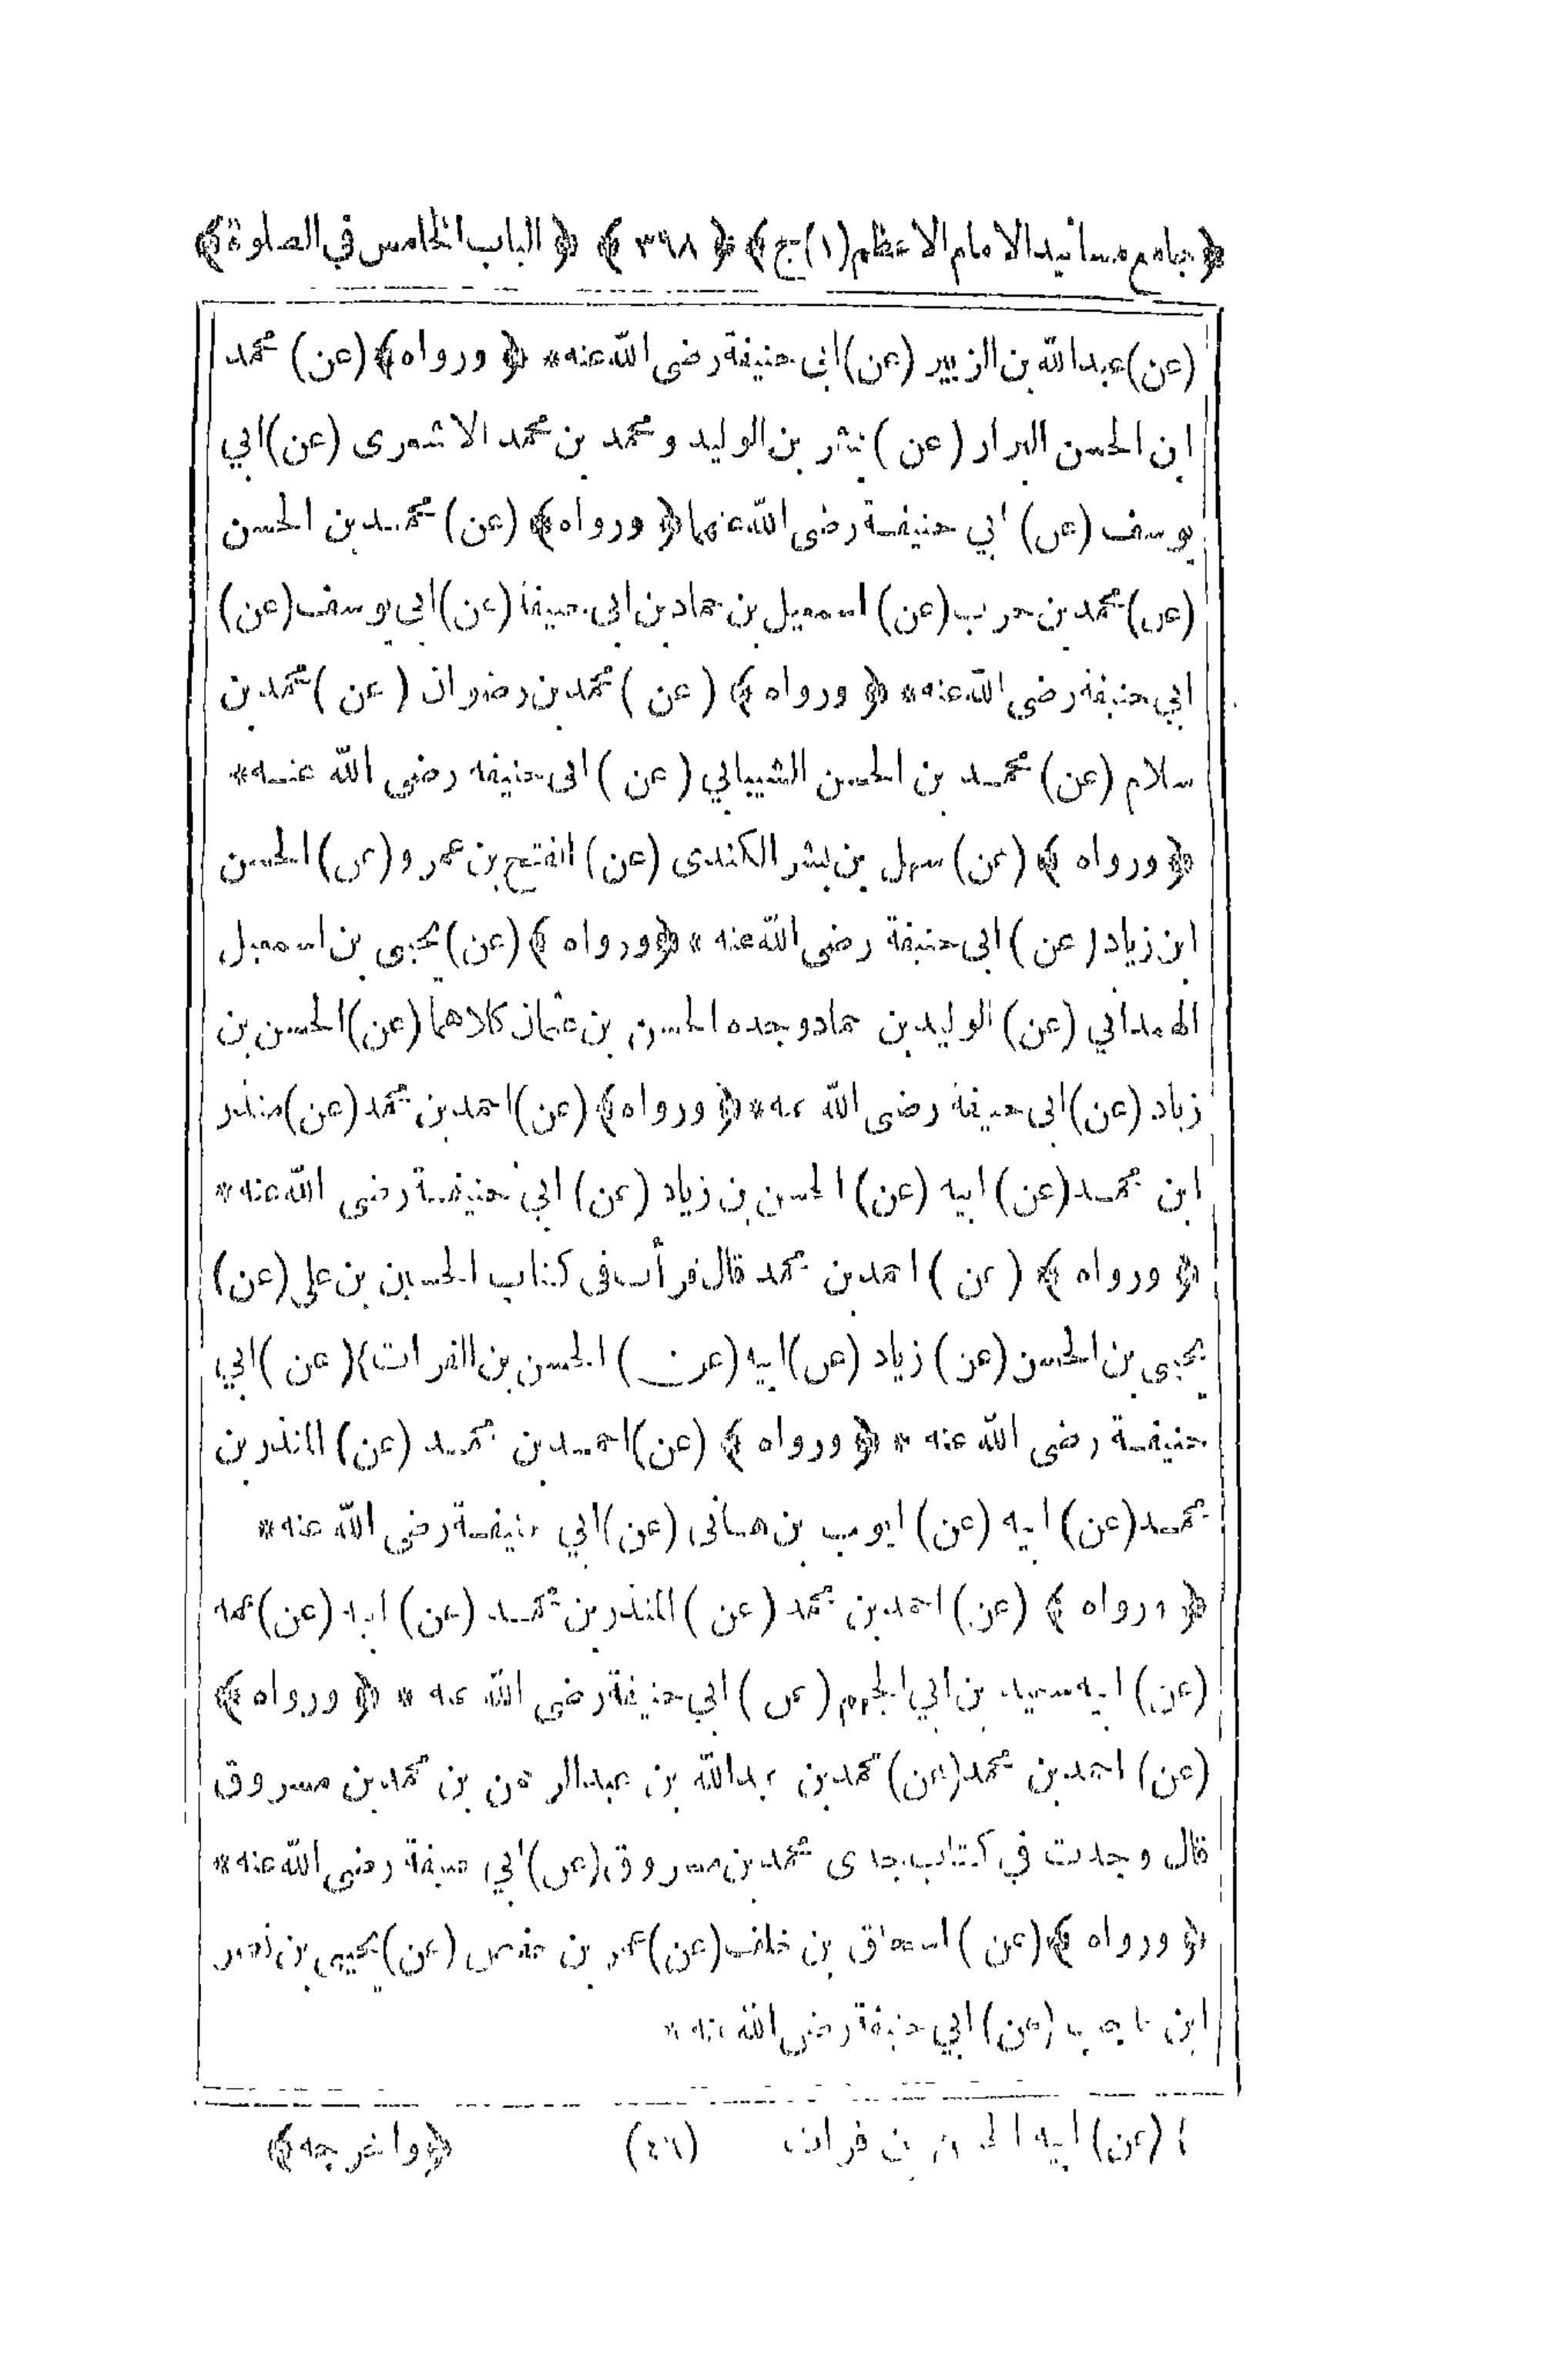 ﴿جامع مسانيد الامام الاعظم (١) ج﴾ ﴿٣٩٨﴾ ﴿الباب الخامس في الصلوة﴾
(عن) عبدالله بن الزبير (عن) ابى حنيفة رضى الله عنه * ﴿ورواه﴾ (عن) محمد
ابن الحسن البزار (عن) بشر بن الوليد ومحمد بن محمد الاشعرى (عن) ابي
يوسف (عن) ابي حنيفة رضى الله عنهما ﴿ورواه﴾ (عن) محمد بن الحسن
(عن) محمد بن حرب (عن) اسمعيل بن حماد بن ابى حنيفة (عن) ابى يوسف (عن)
ابي حنيفة رضى الله عنه * ﴿ورواه﴾ (عن) محمد بن رضوان (عن) محمد بن
سلام (عن) محمد بن الحسن الشيباني (عن) ابى حنيفه رضى الله عنه *
﴿ورواه﴾ (عن) سهل بن بشر الكندى (عن) الفتح بن عمرو (عن) الحسن
ابن زياد (عن) ابى حنيفة رضى الله عنه * ﴿ورواه﴾ (عن) يحيى بن اسمعيل
الهمداني (عن) الوليد بن حماد وجده الحسن بن عثمان كلاهما (عن) الحسن بن
زياد (عن) ابى حنيفة رضى الله عنه * ﴿ورواه﴾ (عن) احمد بن محمد (عن) منذر
ابن محمد (عن) ابيه (عن) الحسن بن زياد (عن) ابي حنيفة رضى الله عنه *
﴿ورواه﴾ (عن) احمد بن محمد قال قرأت فى كتاب الحسين بن على (عن)
يحيى بن الحسن (عن) زياد (عن) ابيه (عن) الحسن بن الفرات} (عن) ابي
حنيفة رضى الله عنه * ﴿ورواه﴾ (عن) احمد بن محمد (عن) المنذر بن
محمد (عن) ابيه (عن) ايوب بن هانى (عن) ابي حنيفة رضى الله عنه *
﴿ورواه﴾ (عن) احمد بن محمد (عن) المنذر بن محمد (عن) ابيه (عن) عمه
(عن) ابيه سعيد بن ابي الجهم (عن) ابي حنيفة رضى الله عنه * ﴿ورواه﴾
(عن) احمد بن محمد (عن) محمد بن عبدالله بن عبدالرحمن بن محمد بن مسروق
قال وجدت في كتاب جدى محمد بن مسروق (عن) ابي حنيفة رضى الله عنه *
﴿ورواه﴾ (عن) اسحاق بن خلف (عن) عمر بن حفص (عن) يحيى بن نصر
ابن حاجب (عن) ابي حنيفة رضى الله عنه *
} (عن) ابيه الحسن بن فرات (٤٦) ﴿واخرجه﴾